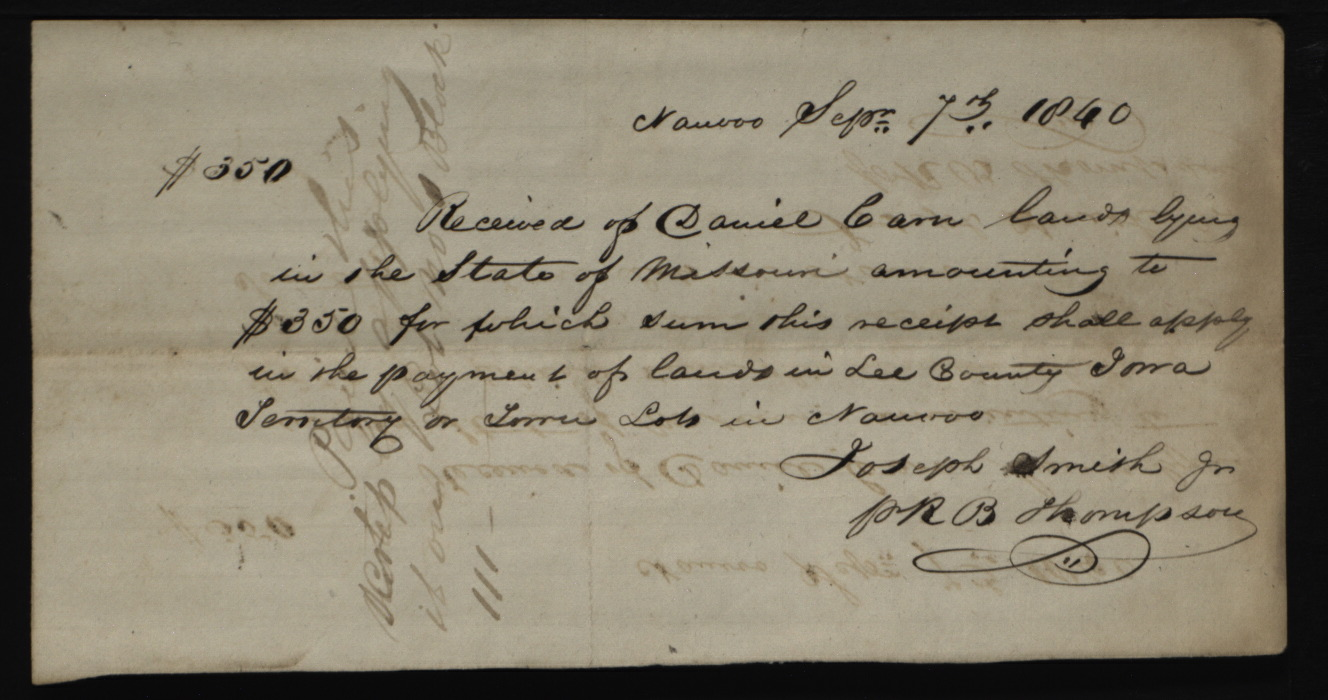 Nauvoo Sepr 7th 1840
$350
Received of Daniel Carn lands lying
in the State of Missouri amounting to
$350 for which sum this receipt shall apply
in the payment of lands in Lee County Iowa
Territory or Town Lots in Nauvoo
Joseph Smith Jr
pr R B Thompson
this
applying
it on Lot No Block
111 –